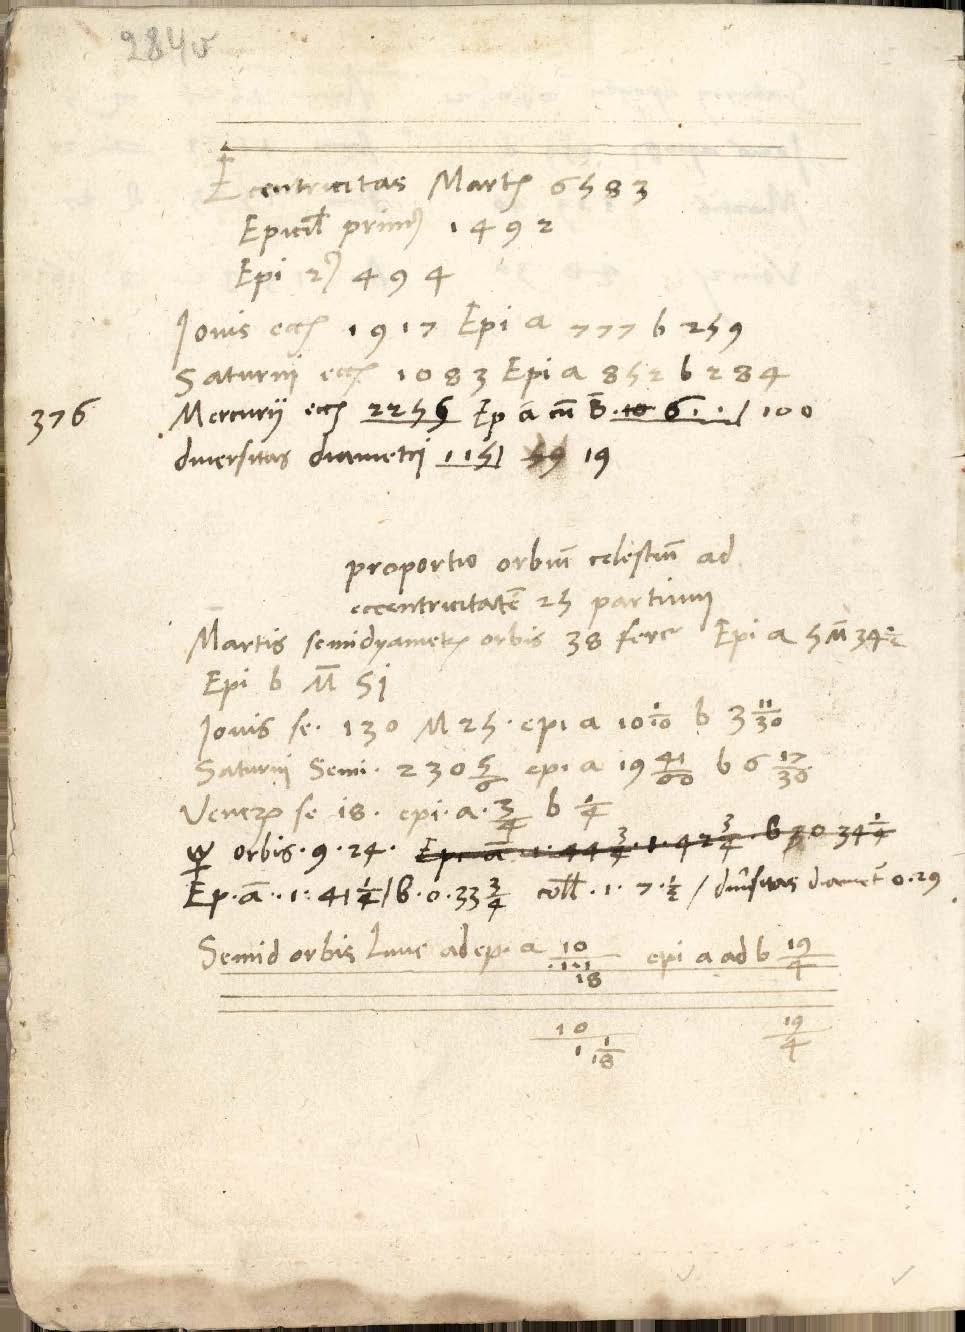 284v
Eccentricitas Martis 6583
Epicicli primi 1492
Epi 2i 494
Jovis ecc 1917 Epi a 777 b 259
Saturni ecc 1083 Epi a 852 b 284
376 Mercurij ecc 2256 Ep ā cū B̄ 6 100
diversitas diametri 115 19
proportio orbiū celestiū ad
eccentricitatē 25 partium
Martis semidyametr orbis 38 fere Epi a 5 M̄ 34 1/2
Epi b M̄ 51
Jovis se. 130 M 25. epi a 10 1/10 b 3 11/30
Saturni Semi. 230 5/6 epi a 19 41/60 b 6 17/30
Veneris se 18. epi. a. 3/4 b 1/4
☿ orbis. 9. 24. Ep. ā. 1. 44 3/4. 1. 42 3/4. b 0 34 1/4
Ep. ā. 1. 41 1/4 / b. 0. 33 3/4 coll. 1. 7. 1/2 / divsitas diamet 0. 29
Semid orbis Lune ad ep. a 10/1 1/18 epi a ad b 19/4
10/1 1/18 19/4